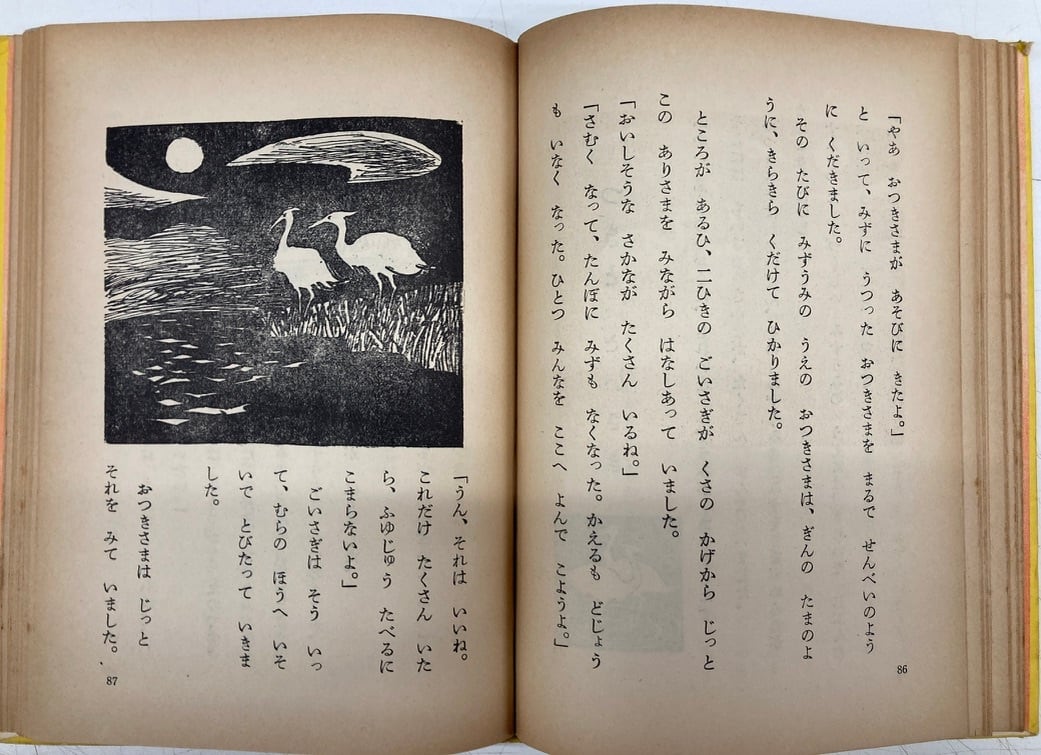 「やあ　おつきさまが　あそびに　きたよ。」
と　いって、みずに　うつった　おつきさまを　まるで　せんべいのよう
に　くだきました。
　その　たびに　みずうみの　うえの　おつきさまは、ぎんの　たまのよ
うに、きらきら　くだけて　ひかりました。
　ところが　あるひ、二ひきの　ごいさぎが　くさの　かげから　じっと
この　ありさまを　みながら　はなしあって　いました。
「おいしそうな　さかなが　たくさん　いるね。」
「さむく　なって、たんぼに　みずも　なくなった。かえるも　どじょう
も　いなく　なった。ひとつ　みんなを　ここへ　よんで　こようよ。」
86
「うん、それは　いいね。
これだけ　たくさん　いた
ら、ふゆじゅう　たべるに
こまらないよ。」
　ごいさぎは　そう　いっ
て、むらの　ほうへ　いそ
いで　とびたって　いきま
した。
　おつきさまは　じっと
それを　みて　いました。
87